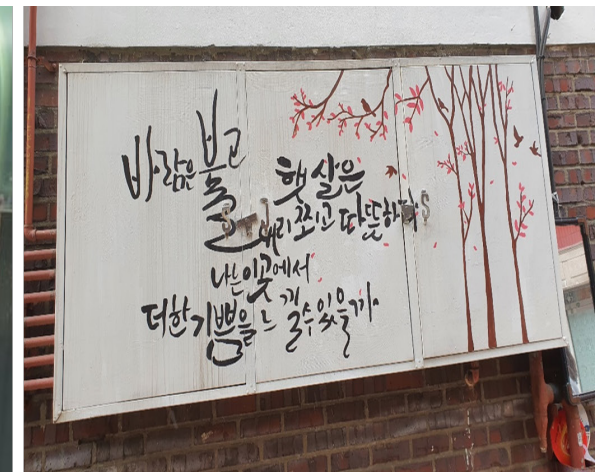 바람은 불고
햇살은
내리쪼이고 따뜻하다
나는 이곳에서
더한 기쁨을 느낄 수 있을까.